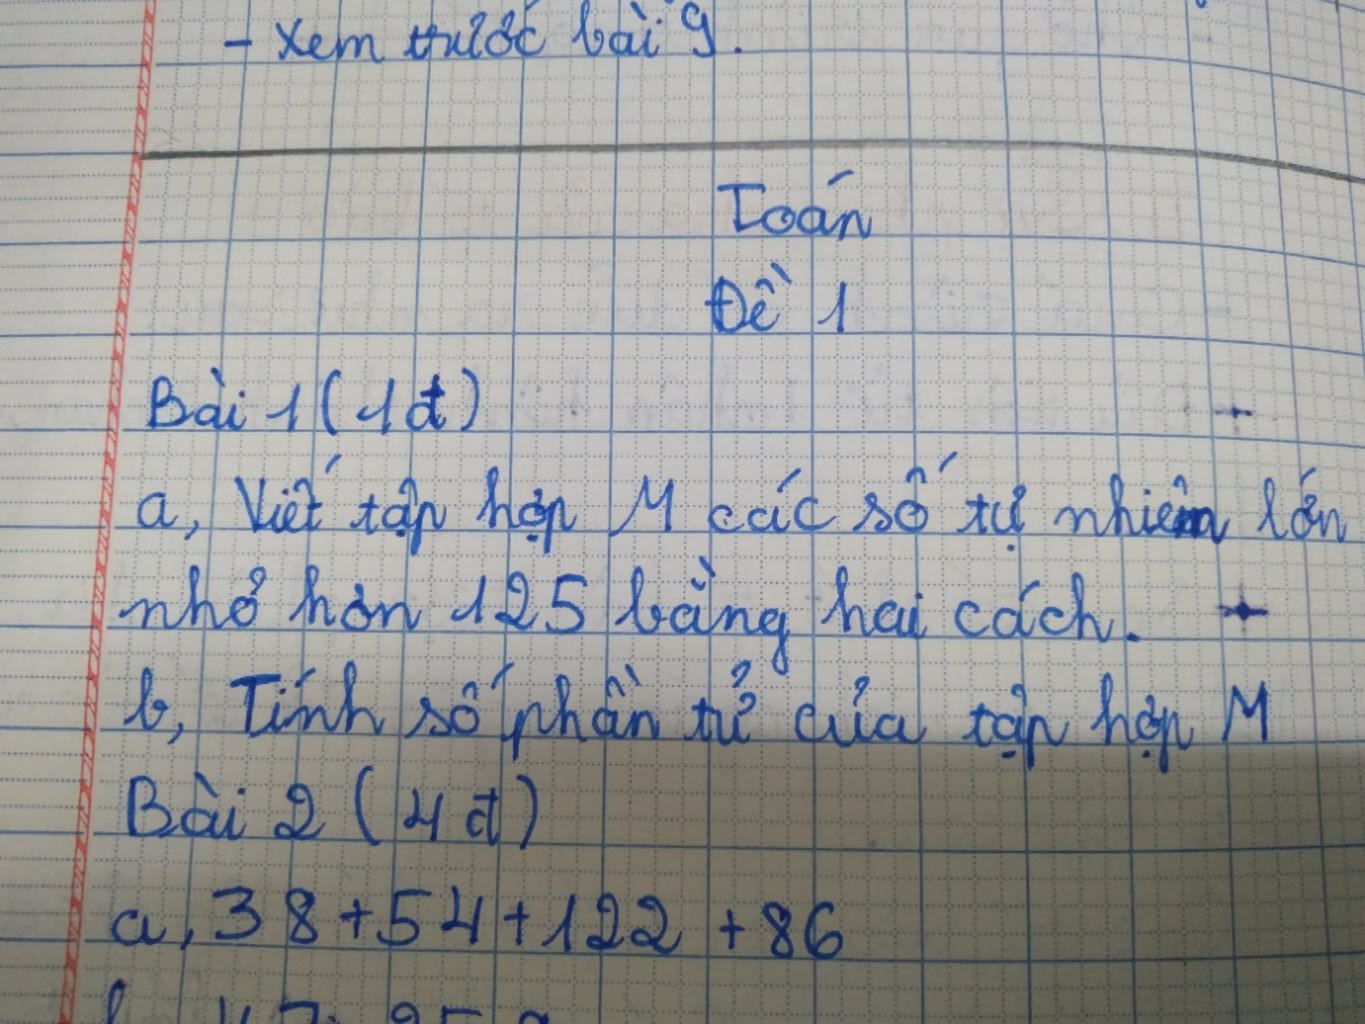 - Xem trước bài 9.
Toán
Đề 1
Bài 1 (1đ)
a, Viết tập hợp M các số tự nhiên lớn
nhỏ hơn 125 bằng hai cách.
b, Tính số phần tử của tập hợp M
Bài 2 (4đ)
a, 38+54+122 +86